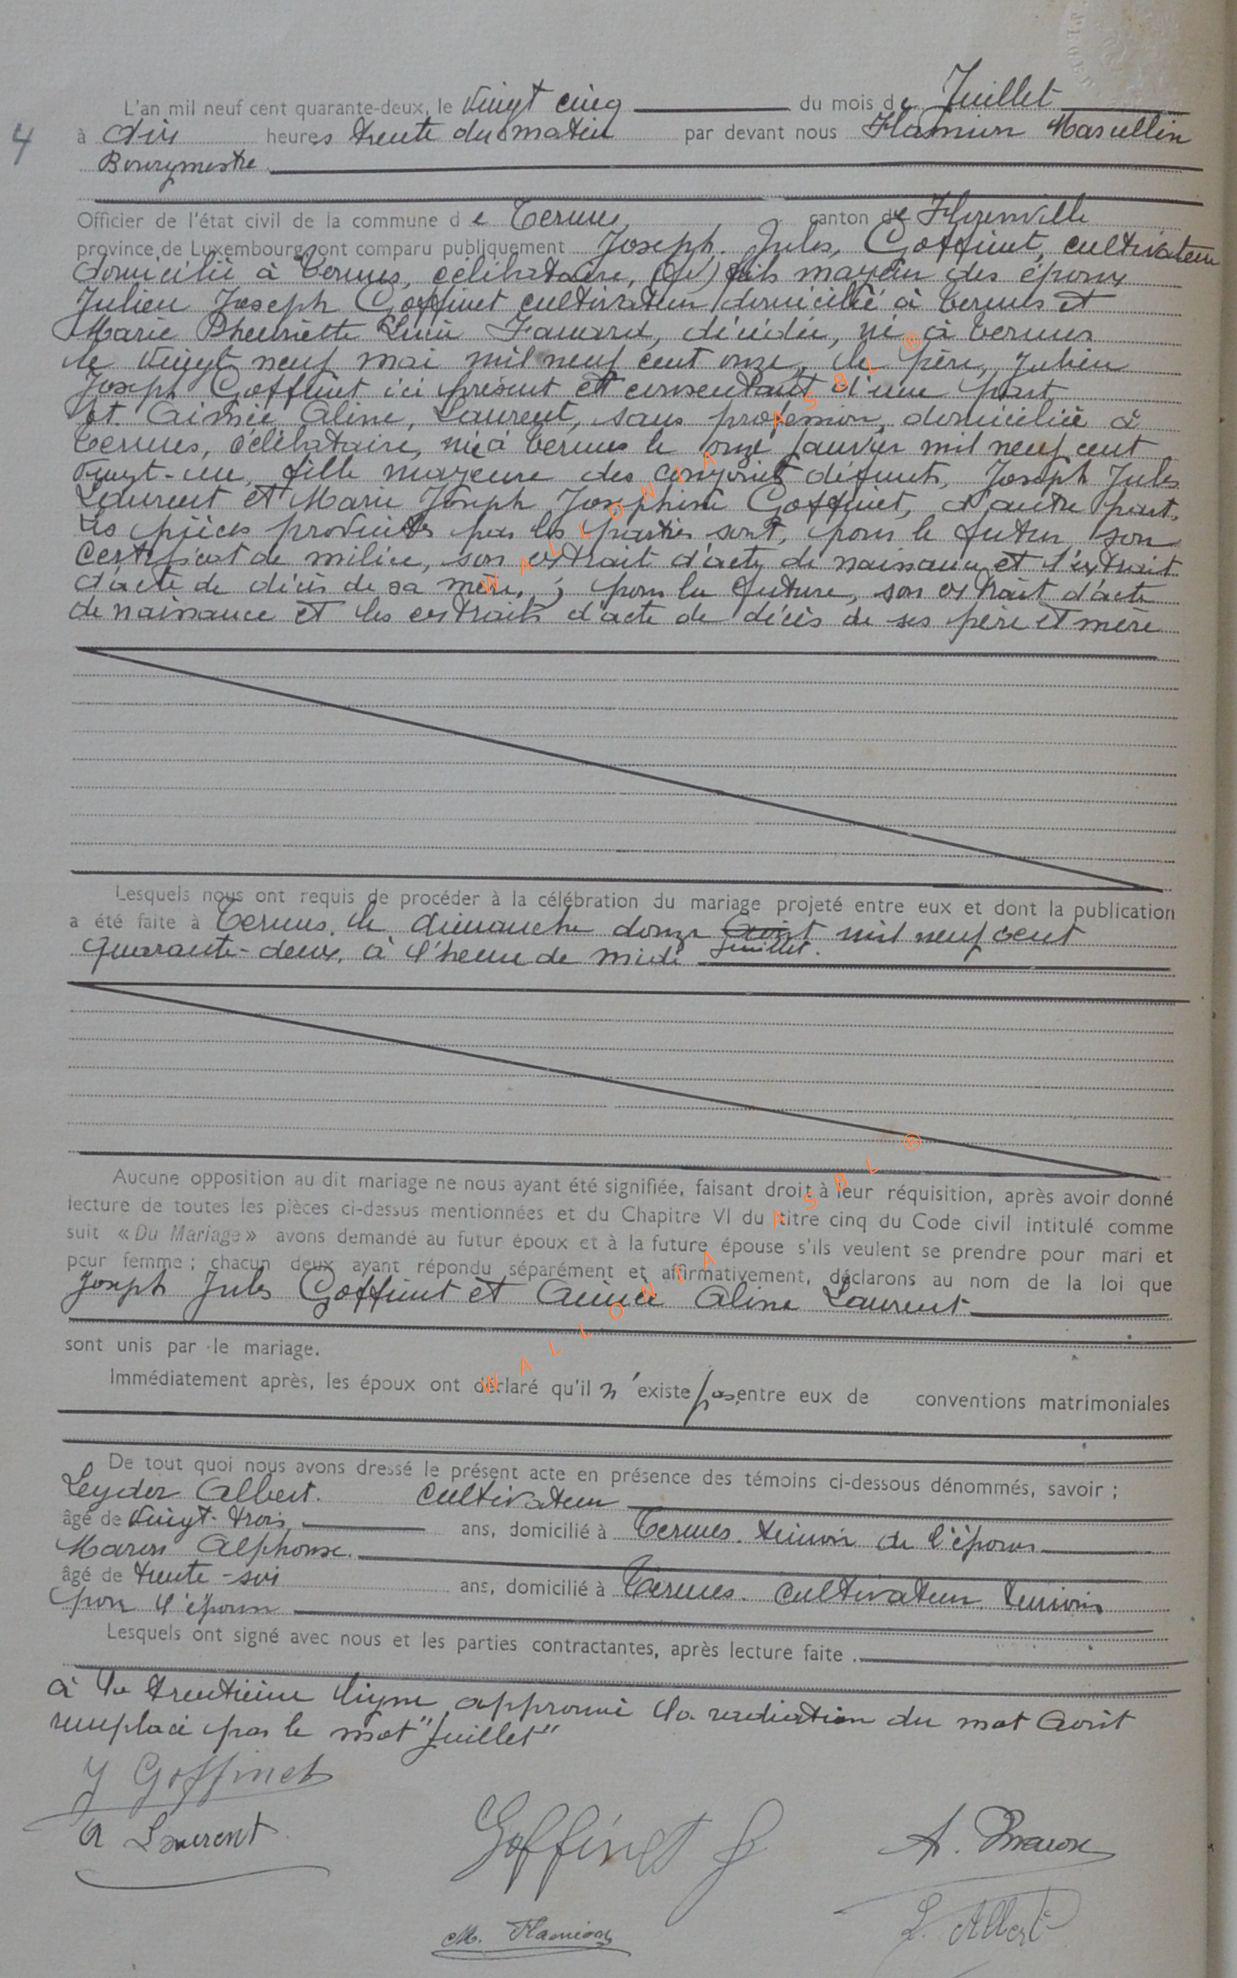 L'an mil neuf cent quarante-deux, le vingt cinq du mois de Juillet
4
à dix heures trente du matin par devant nous Flamion Marcellin
Bourgmestre
Officier de l'état civil de la commune de Termes canton de Florenville
province de Luxembourg ont comparu publiquement Joseph, Jules, Goffinet, cultivateur
domicilié à Termes, célibataire, fils majeur des époux
Julien Joseph Goffinet cultivateur domicilié à Termes et
Marie Lucie décédée, né à Termes
le vingt neuf mai mil neuf cent onze, le père, Julien
Joseph Goffinet ici présent et consentant d'une part
et Aimée Aline, Laurent, sans profession, domiciliée à
Termes, célibataire, née à Termes le onze janvier mil neuf cent
vingt-un, fille majeure des conjoints défunts, Joseph Jules
Laurent et Marie Joseph Josephine Goffinet, d'autre part.
Les pièces produites par les parties sont, pour le futur, son
certificat de milice, son extrait d'acte de naissance et l'extrait
d'acte de décès de sa mère, ; pour la future, son extrait d'acte
de naissance et les extraits d'acte de décès de ses père et mère
Lesquels nous ont requis de procéder à la célébration du mariage projeté entre eux et dont la publication
a été faite à Termes, le dimanche douze Août mil neuf cent
quarante-deux, à l'heure de midi juillet.
Aucune opposition au dit mariage ne nous ayant été signifiée, faisant droit à leur réquisition, après avoir donné
lecture de toutes les pièces ci-dessus mentionnées et du Chapitre VI du titre cinq du Code civil intitulé comme
suit « Du Mariage » avons demandé au futur époux et à la future épouse s'ils veulent se prendre pour mari et
pour femme ; chacun deux ayant répondu séparément et affirmativement, déclarons au nom de la loi que
Joseph Jules Goffinet et Aimée Aline Laurent
sont unis par le mariage.
Immédiatement après, les époux ont déclaré qu'il n'existe pas entre eux de conventions matrimoniales
De tout quoi nous avons dressé le présent acte en présence des témoins ci-dessous dénommés, savoir ;
Leyder Albert. cultivateur
âgé de vingt-trois ans, domicilié à Termes. témoin de l'époux
Maron Alphonse.
âgé de trente-six ans, domicilié à Termes. cultivateur. témoin
pour l'épouse
Lesquels ont signé avec nous et les parties contractantes, après lecture faite.
à la trentième ligne, approuvé la radiation du mot Août
remplacé par le mot "juillet"
J Goffinet
A Laurent
Goffinet J
A. Maron
M. Flamion
L. Albert
WALLONIA ASBL ®
WALLONIA ASBL ®